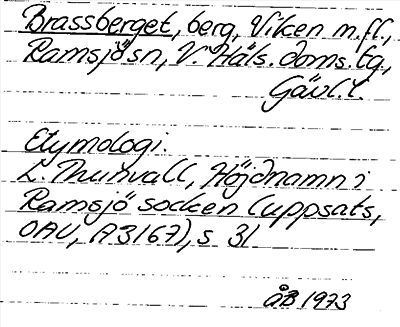 Brassberget, berg, Viken m.fl.,
Ramsjö sn, V. Häls. doms. tg,
Gävl. l.
Etymologi.
L. Thunvall, Höjdnamn i
Ramsjö socken (uppsats,
OAU, A3167), s 31
ÅB 1973